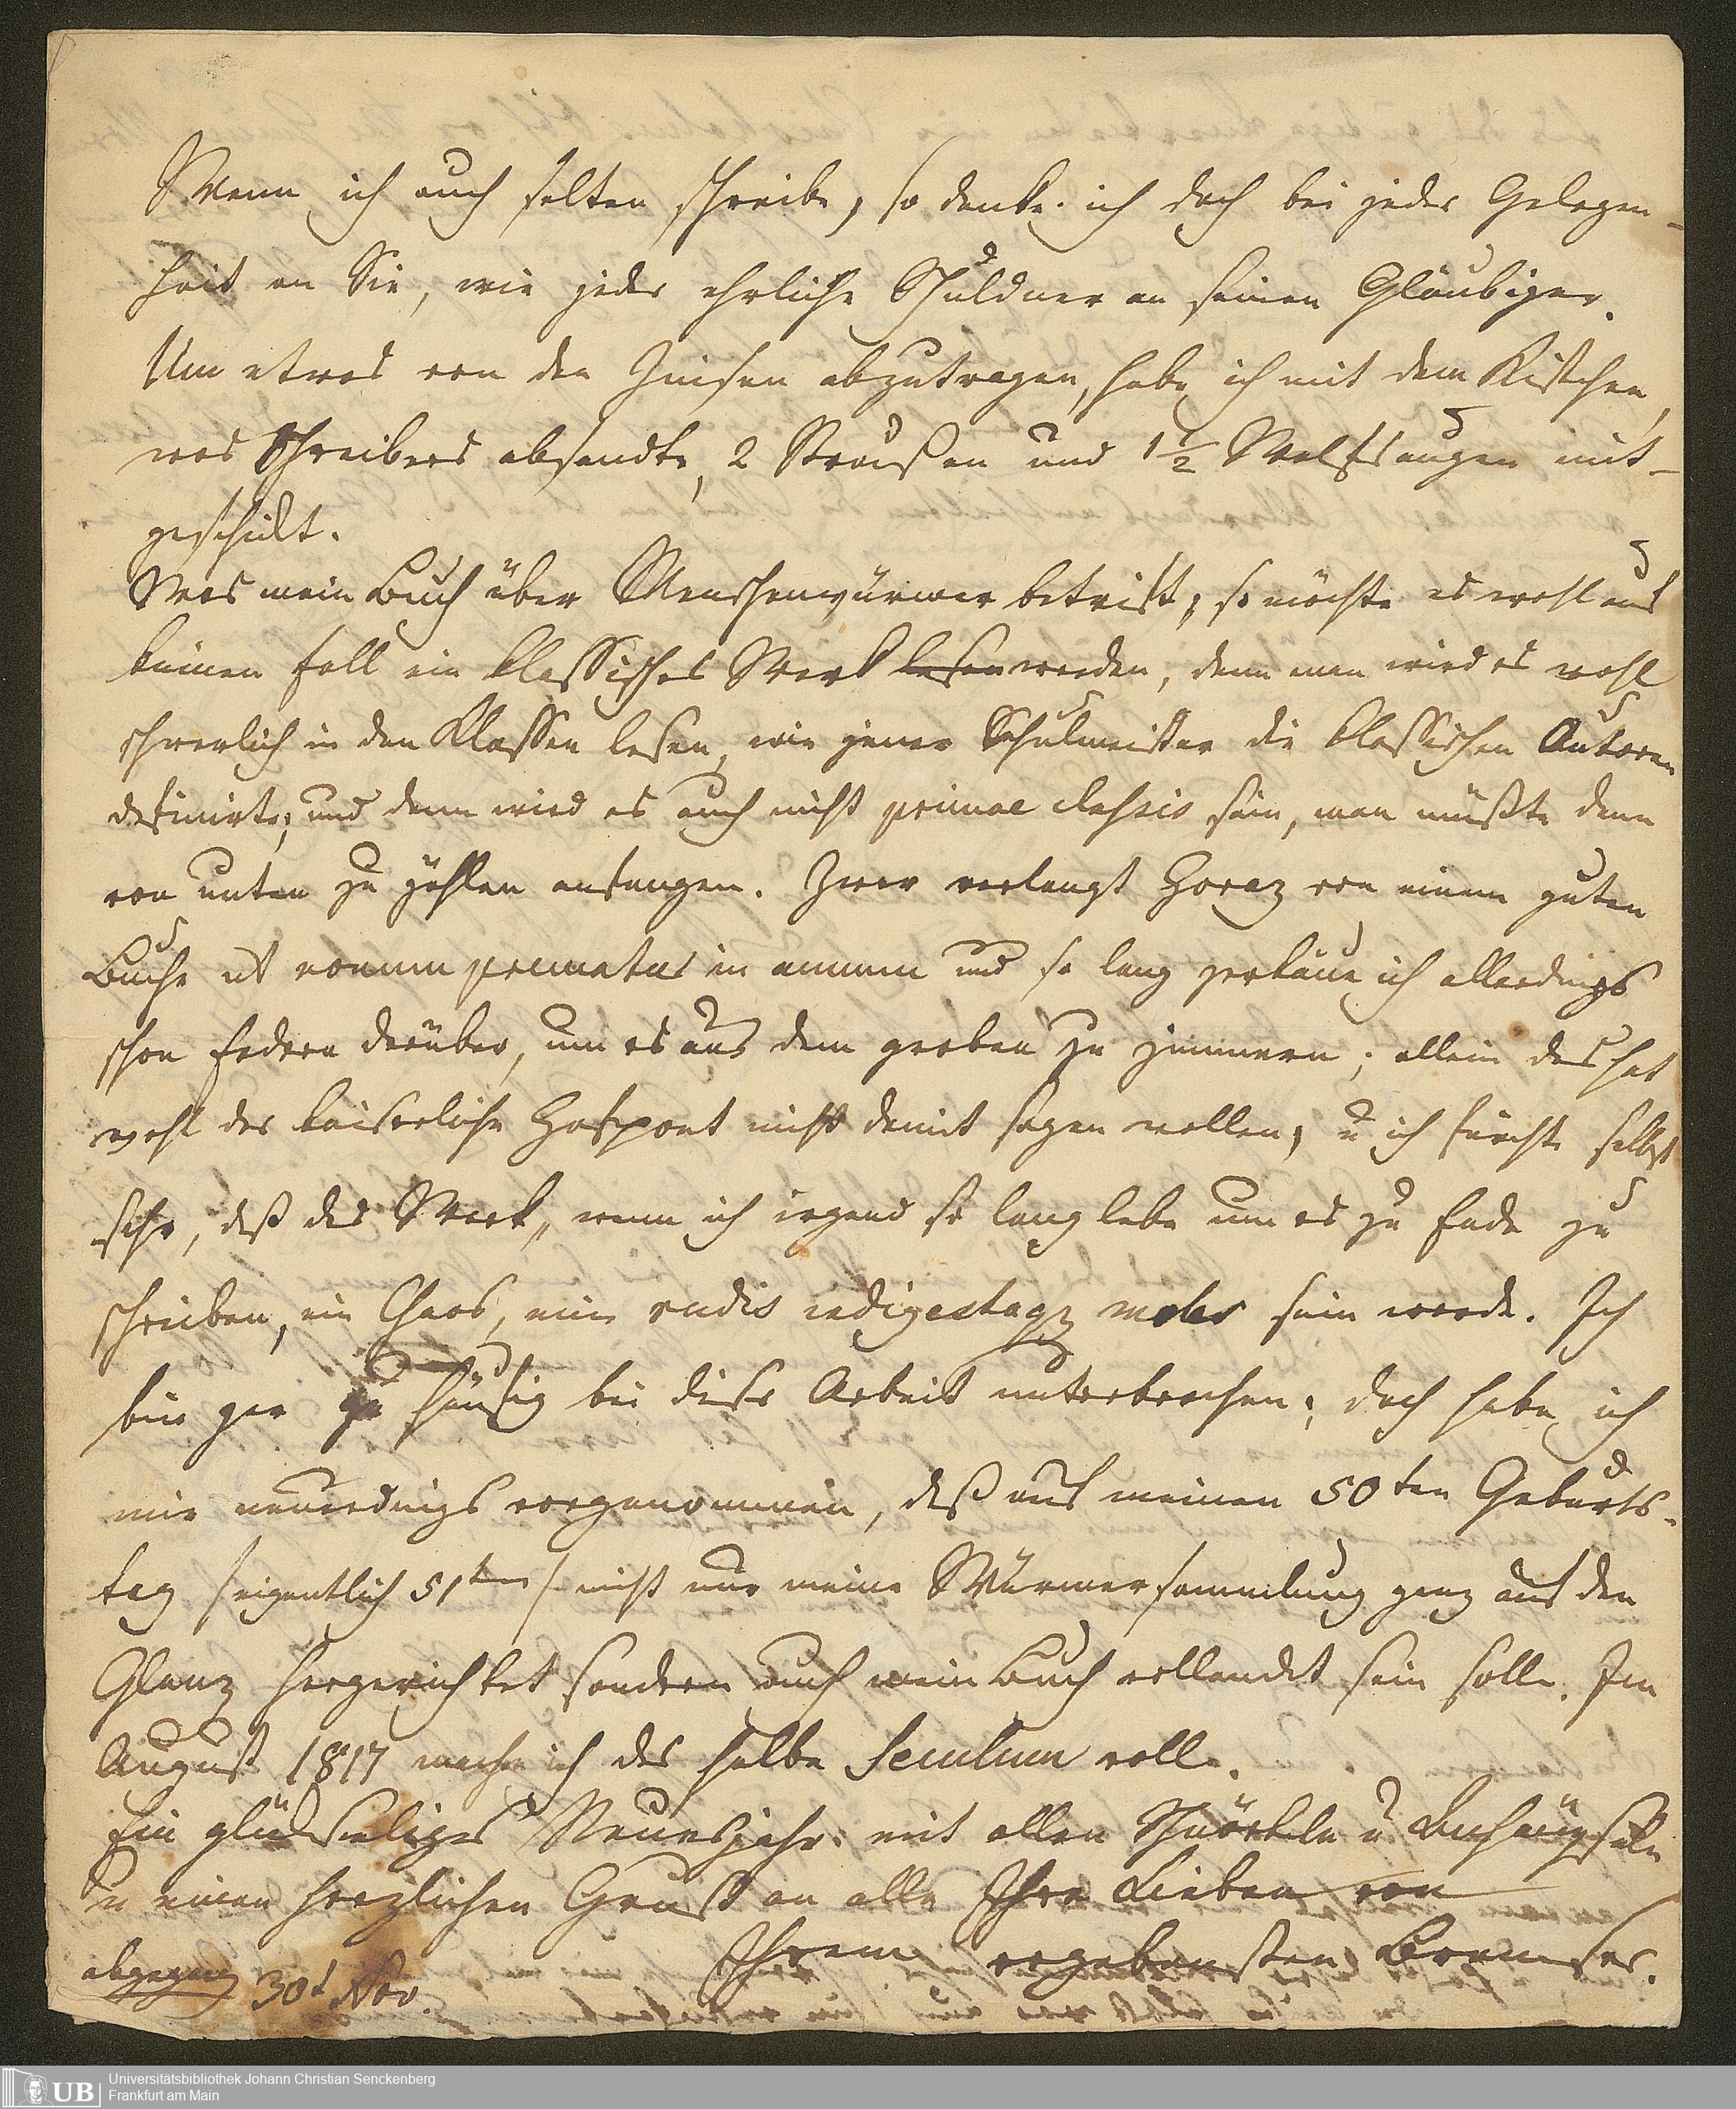 Wenn ich auch selten schreibe, so denke ich doch bei jeder Gelegen-
heit an Sie, wie jeder ehrliche Schuldner an seinen Gläubiger.
Um etwas von den Zinsen abzutragen, habe ich mit dem Kistchen,
was Schreibers absandte, 2 Straußen und 1 1/2 Wolfsaugen mit-
geschickt.
Was mein Buch über Menschenwürmer betrift, so möchte es wohl auf
keinen Fall ein klassisches Werk lesen werden, denn man wird es wohl
schwerlich in den Klassen lesen, wie jener Schulmeister die klassischen Autoren
definirte; und dann wird es auch nicht primae classis sein, man müßte denn
von unten zu zählen anfangen. Zwar verlangt Horaz von einem guten
Buche ut nonum prematur in annum und so lang zerkäue ich allerdings
schon Federn darüber, um es aus dem groben zu zimmern; allein das hat
wohl der kaiserliche Hofpoet nicht damit sagen wollen, u ich fürchte selbst
sehr, daß das Werk, wenn ich irgend so lang lebe um es zu Ende zu
schreiben, ein Chaos, eine rudis indigestaq moles sein werde. Ich
bin gar zu häufig bei dieser Arbeit unterbrochen; doch habe ich
mir neuerdings vorgenommen, daß auf meinen 50ten Geburts-
tag /eigentlich 51ten/ nicht nur meine Würmersammlung ganz auf den
Glanz hergerichtet sondern auch mein Buch vollendet sein solle. Im
August 1817 mache ich das halbe Seculum voll.
Ein glückseliges Neuesjahr mit allen Schnörkeln u Anhängseln
u einen herzlichen Gruß an alle Ihre Lieben von
Ihrem ergebensten Bremser.
abgegang 30t Nov.
Universitätsbibliothek Johann Christian Senckenberg
UB
Frankfurt am Main